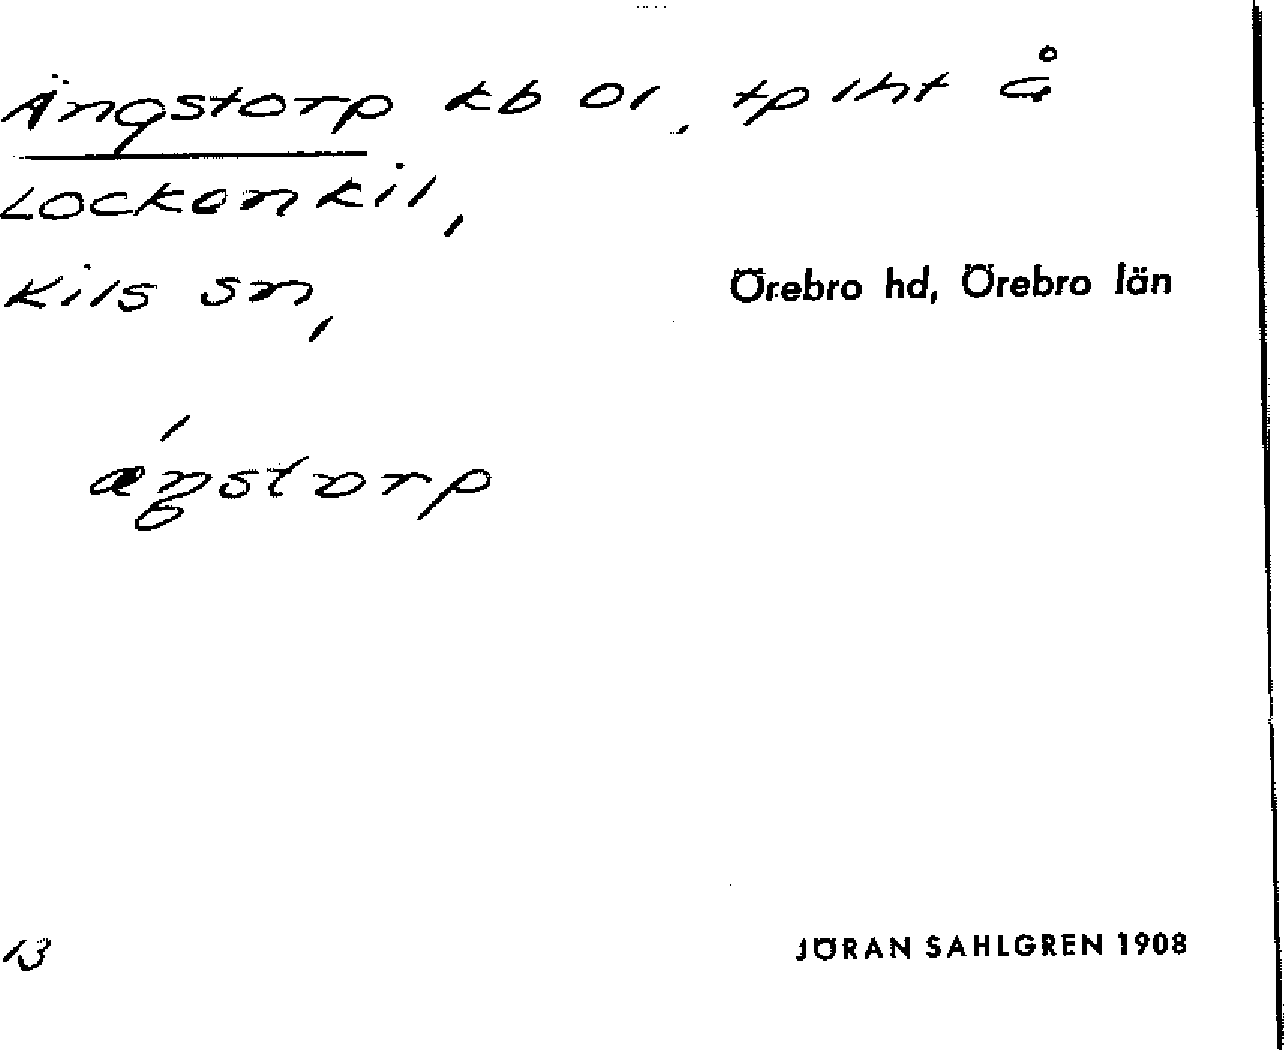 Ängstorp kb or, tp lht å
Lockenkil,
Kils sn, Örebro hd, Örebro län
æŋstorp
13 JÖRAN SAHLGREN 1908